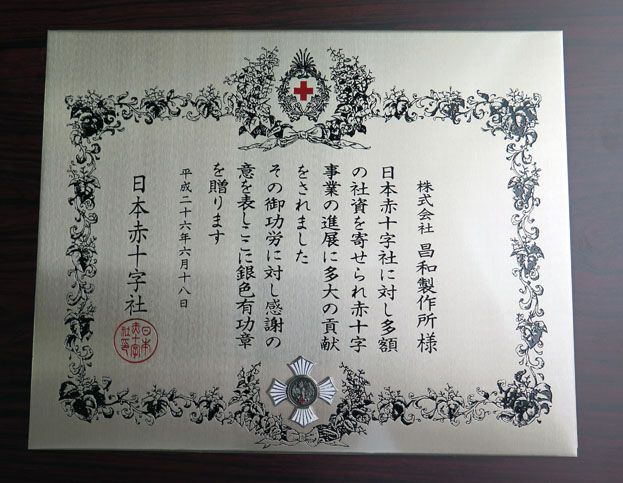 株式会社 昌和製作所 様
日本赤十字社に対し多額
の社資を寄せられ赤十字
事業の進展に多大の貢献
をされました
その御功労に対し感謝の
意を表しここに銀色有功章
を贈ります
平成二十六年六月十八日
日本赤十字社
日本
赤十字
社印